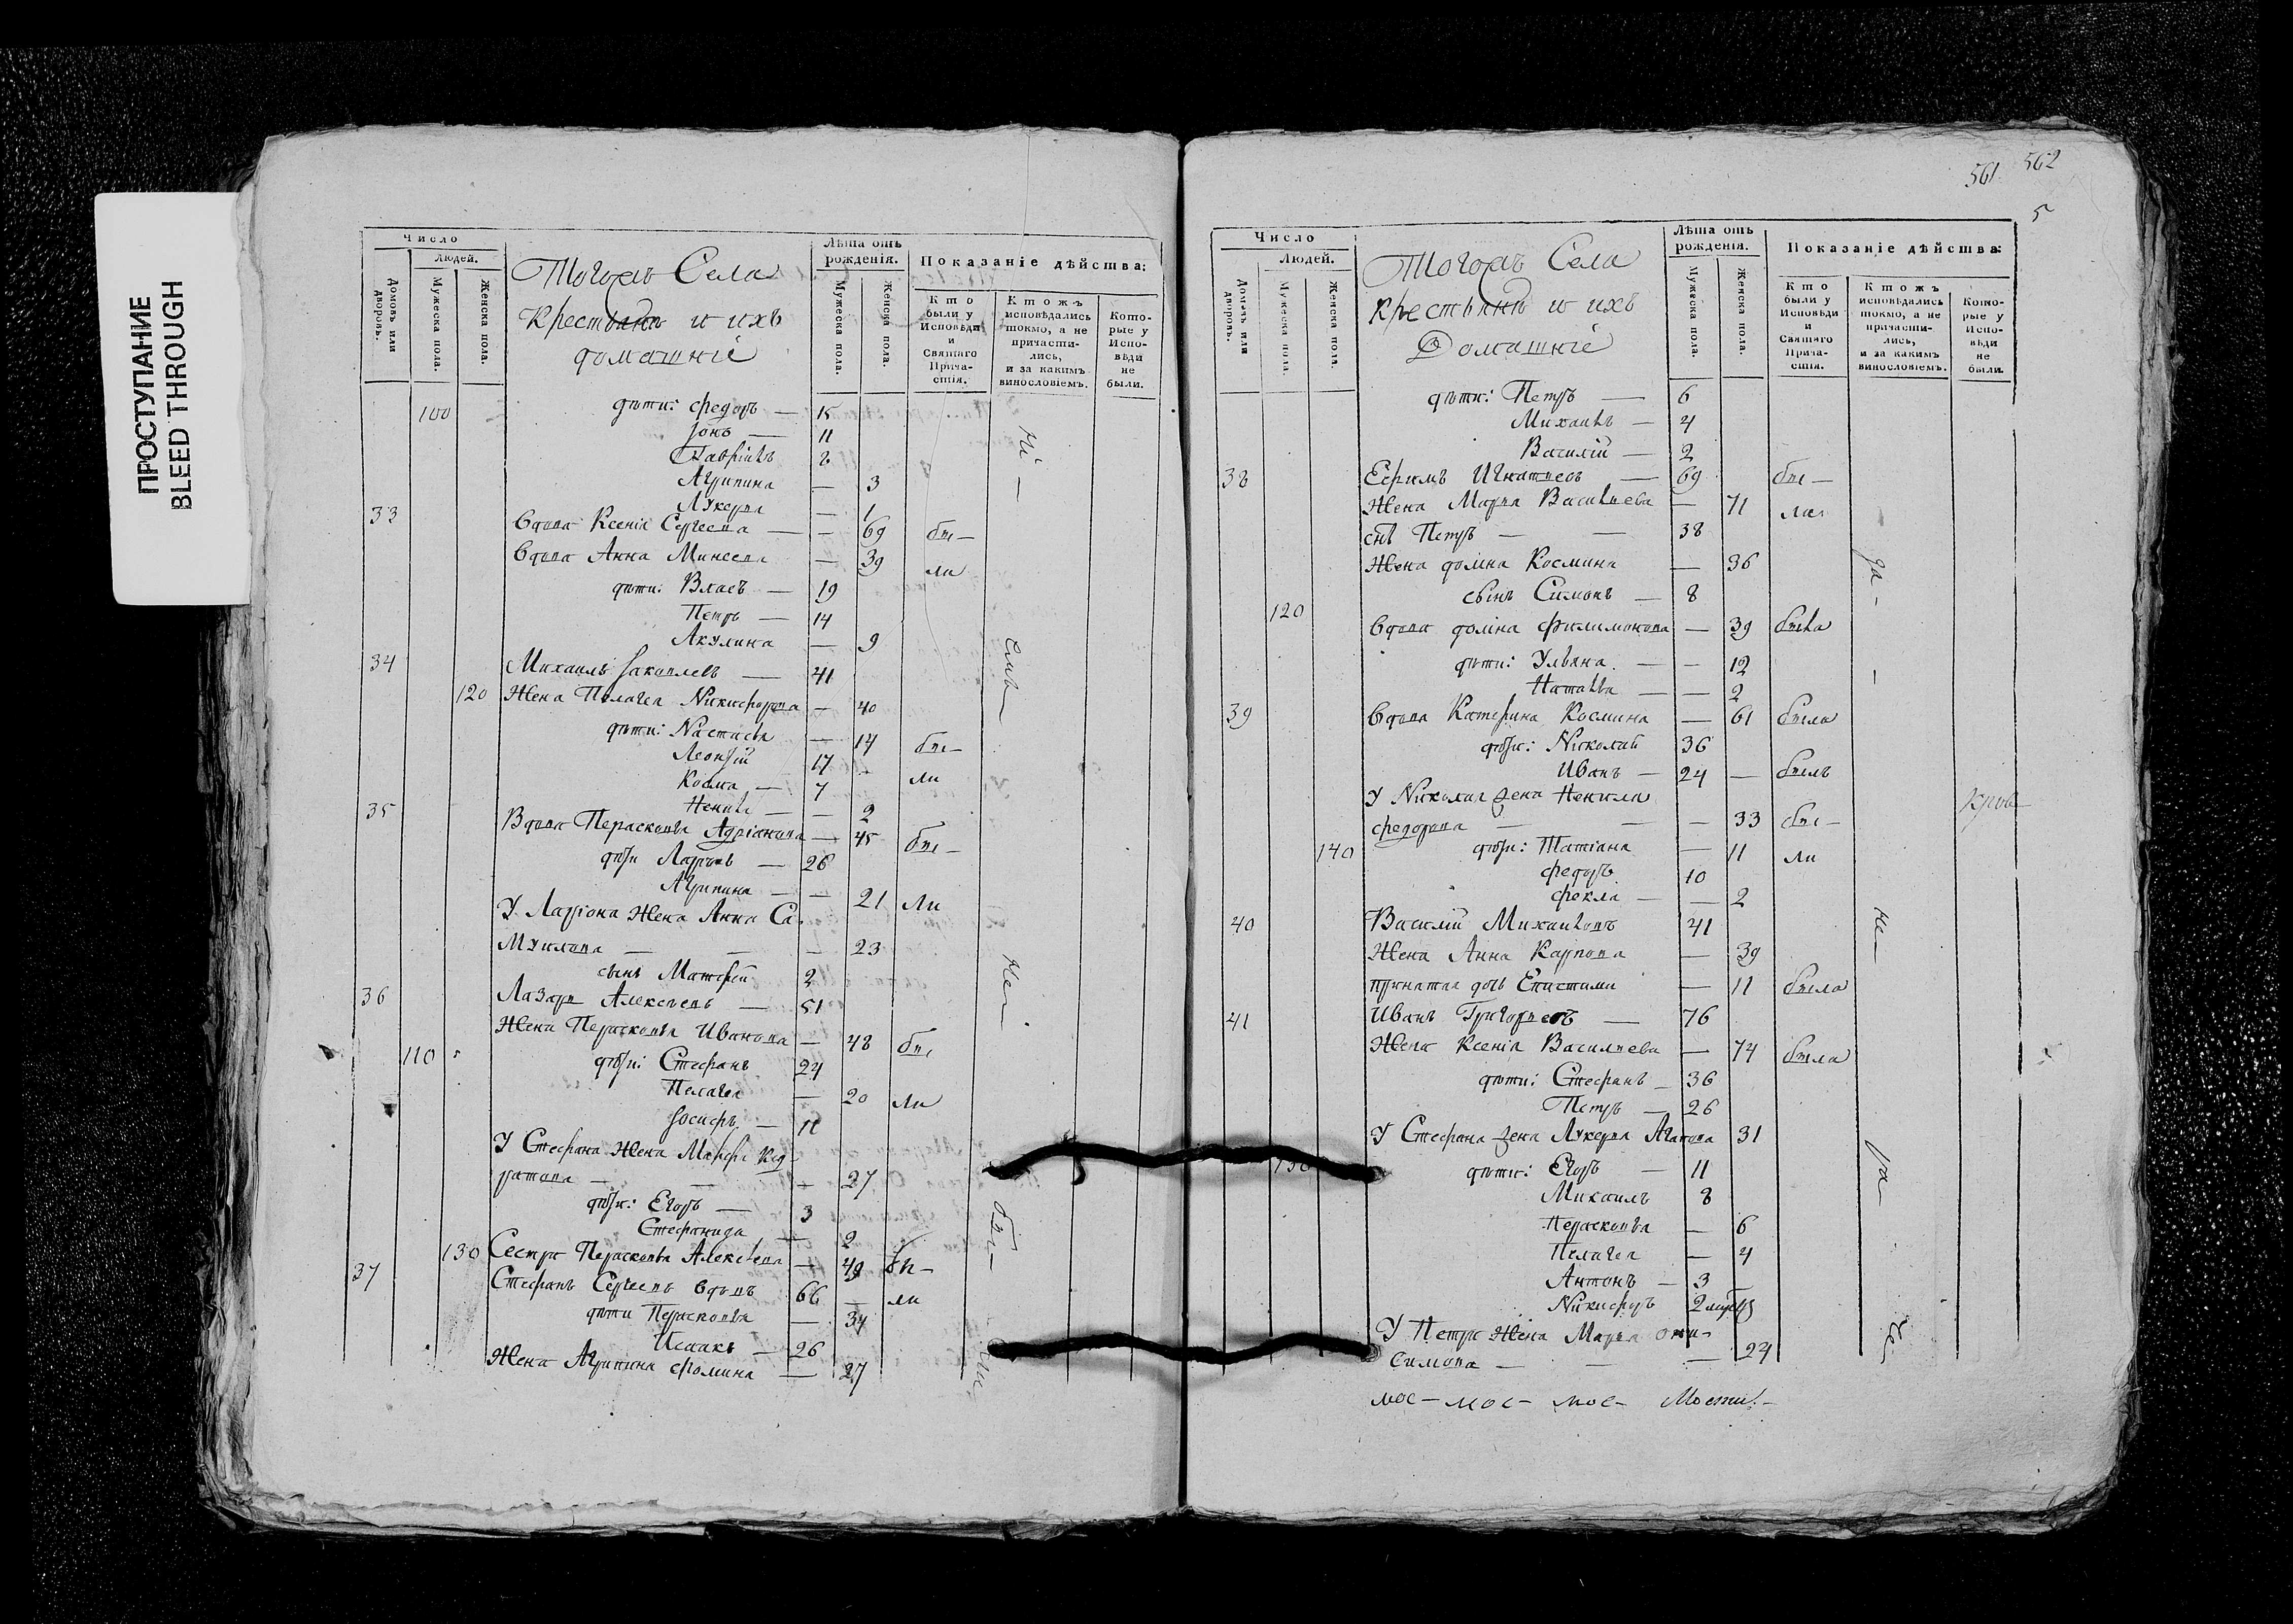 ПРОСТУПАНИЕ
BLEED THROUGH
Число
Людей.
Домовъ или дворовъ.
Мужеска пола.
Женска пола.
Тогожъ Села
крестьяне и ихъ
домашніе
Лѣта отъ рожденія.
Мужеска пола.
Женска пола.
Показаніе дѣйства:
Кто были у Исповѣди и Святаго Прича-стія.
Ктожъ исповѣдались токмо, а не причасти-лись, и за какимъ винословіемъ.
Кото-рые у Испо-вѣди не были.
100 дѣти: Федоръ — 15
Іонъ — 11
Гавріилъ 8
Агрипина — 3
Лукерья — 1
33 Вдова Ксенія Сергеева — — 69 бы—
Вдова Анна Минеева — 39 ли
дѣти: Власъ — 19
Петръ — 14
Акулина — 9
34 Михаилъ Іаковлевъ — 41
120 Жена Пелагея Никифорова — 40
дѣти: Настасья — 14 бы—
Леонтій 17 ли
Косма — 7
Ненила — — 2
35 Вдова Перасковья Адріанова — 45 бы—
дѣти Ларіонъ — 26
Агрипина — — 21 ли
У Ларіона Жена Анна Са-
муилова — — — 23
сынъ Матфей 2
36 Лазарь Алексѣевъ — 51
Жена Перасковья Иванова — 48 бы
110 дѣти: Стефанъ 24
Пелагея — 20 ли
Іосифъ — 11
У Стефана Жена Марфа Код-
ратова — — — 27
дѣти: Егоръ — 3
Стефанида — 2
130 Сестра Перасковья Алексѣева — 49 бы—
37 Стефанъ Сергеевъ вдовъ 66 — ли
дѣти Перасковья — 34
Исаакъ — 26
Жена Агрипина Фомина — 27
561 562
5
Число
Людей.
Домовъ или дворовъ.
Мужеска пола.
Женска пола.
Тогожъ Села
крестьяне и ихъ
Домашніе
Лѣта отъ рожденія.
Мужеска пола.
Женска пола.
Показаніе дѣйства:
Кто были у Исповѣди и Святаго Прича-стія.
Ктожъ исповѣдались токмо, а не причасти-лись, и за какимъ винословіемъ.
Кото-рые у Испо-вѣди не были.
дѣти: Петръ — 6
Михаилъ — 4
Василій — 2
38 Ефимъ Игнатьевъ — 69 бы—
Жена Марья Васильева — 71 ли
снъ Петръ — — 38
Жена Домна Космина — 36
сынъ Симонъ — 8
120
Вдова Домна Филимонова — 39 была
дѣти: Ульяна — — 12
Наталья — — 2
39 Вдова Катерина Космина — 61 была
дѣти: Николай 36
Иванъ — 24 — былъ
У Николая жена Ненила
Федорова — — — 33 бы—
140 дѣти: Татіана — 11 ли
Федоръ 10
Фекла — — 2
40 Василій Михайловъ 41
Жена Анна Карпова — 39
принятая дочь Епистимія — 11 была
41 Иванъ Григорьевъ — 76
Жена Ксенія Васильева — 74 была
дѣти: Стефанъ — 36
Петръ — 26
У Стефана жена Лукерья Агапова 31
дѣти: Егоръ — 11
Михаилъ 8
Перасковья — 6
Пелагея — 4
Антонъ — 3 —
Никифоръ 2
У Петра Жена Марья Они-
симова — — — 24
мос— мос— мос—